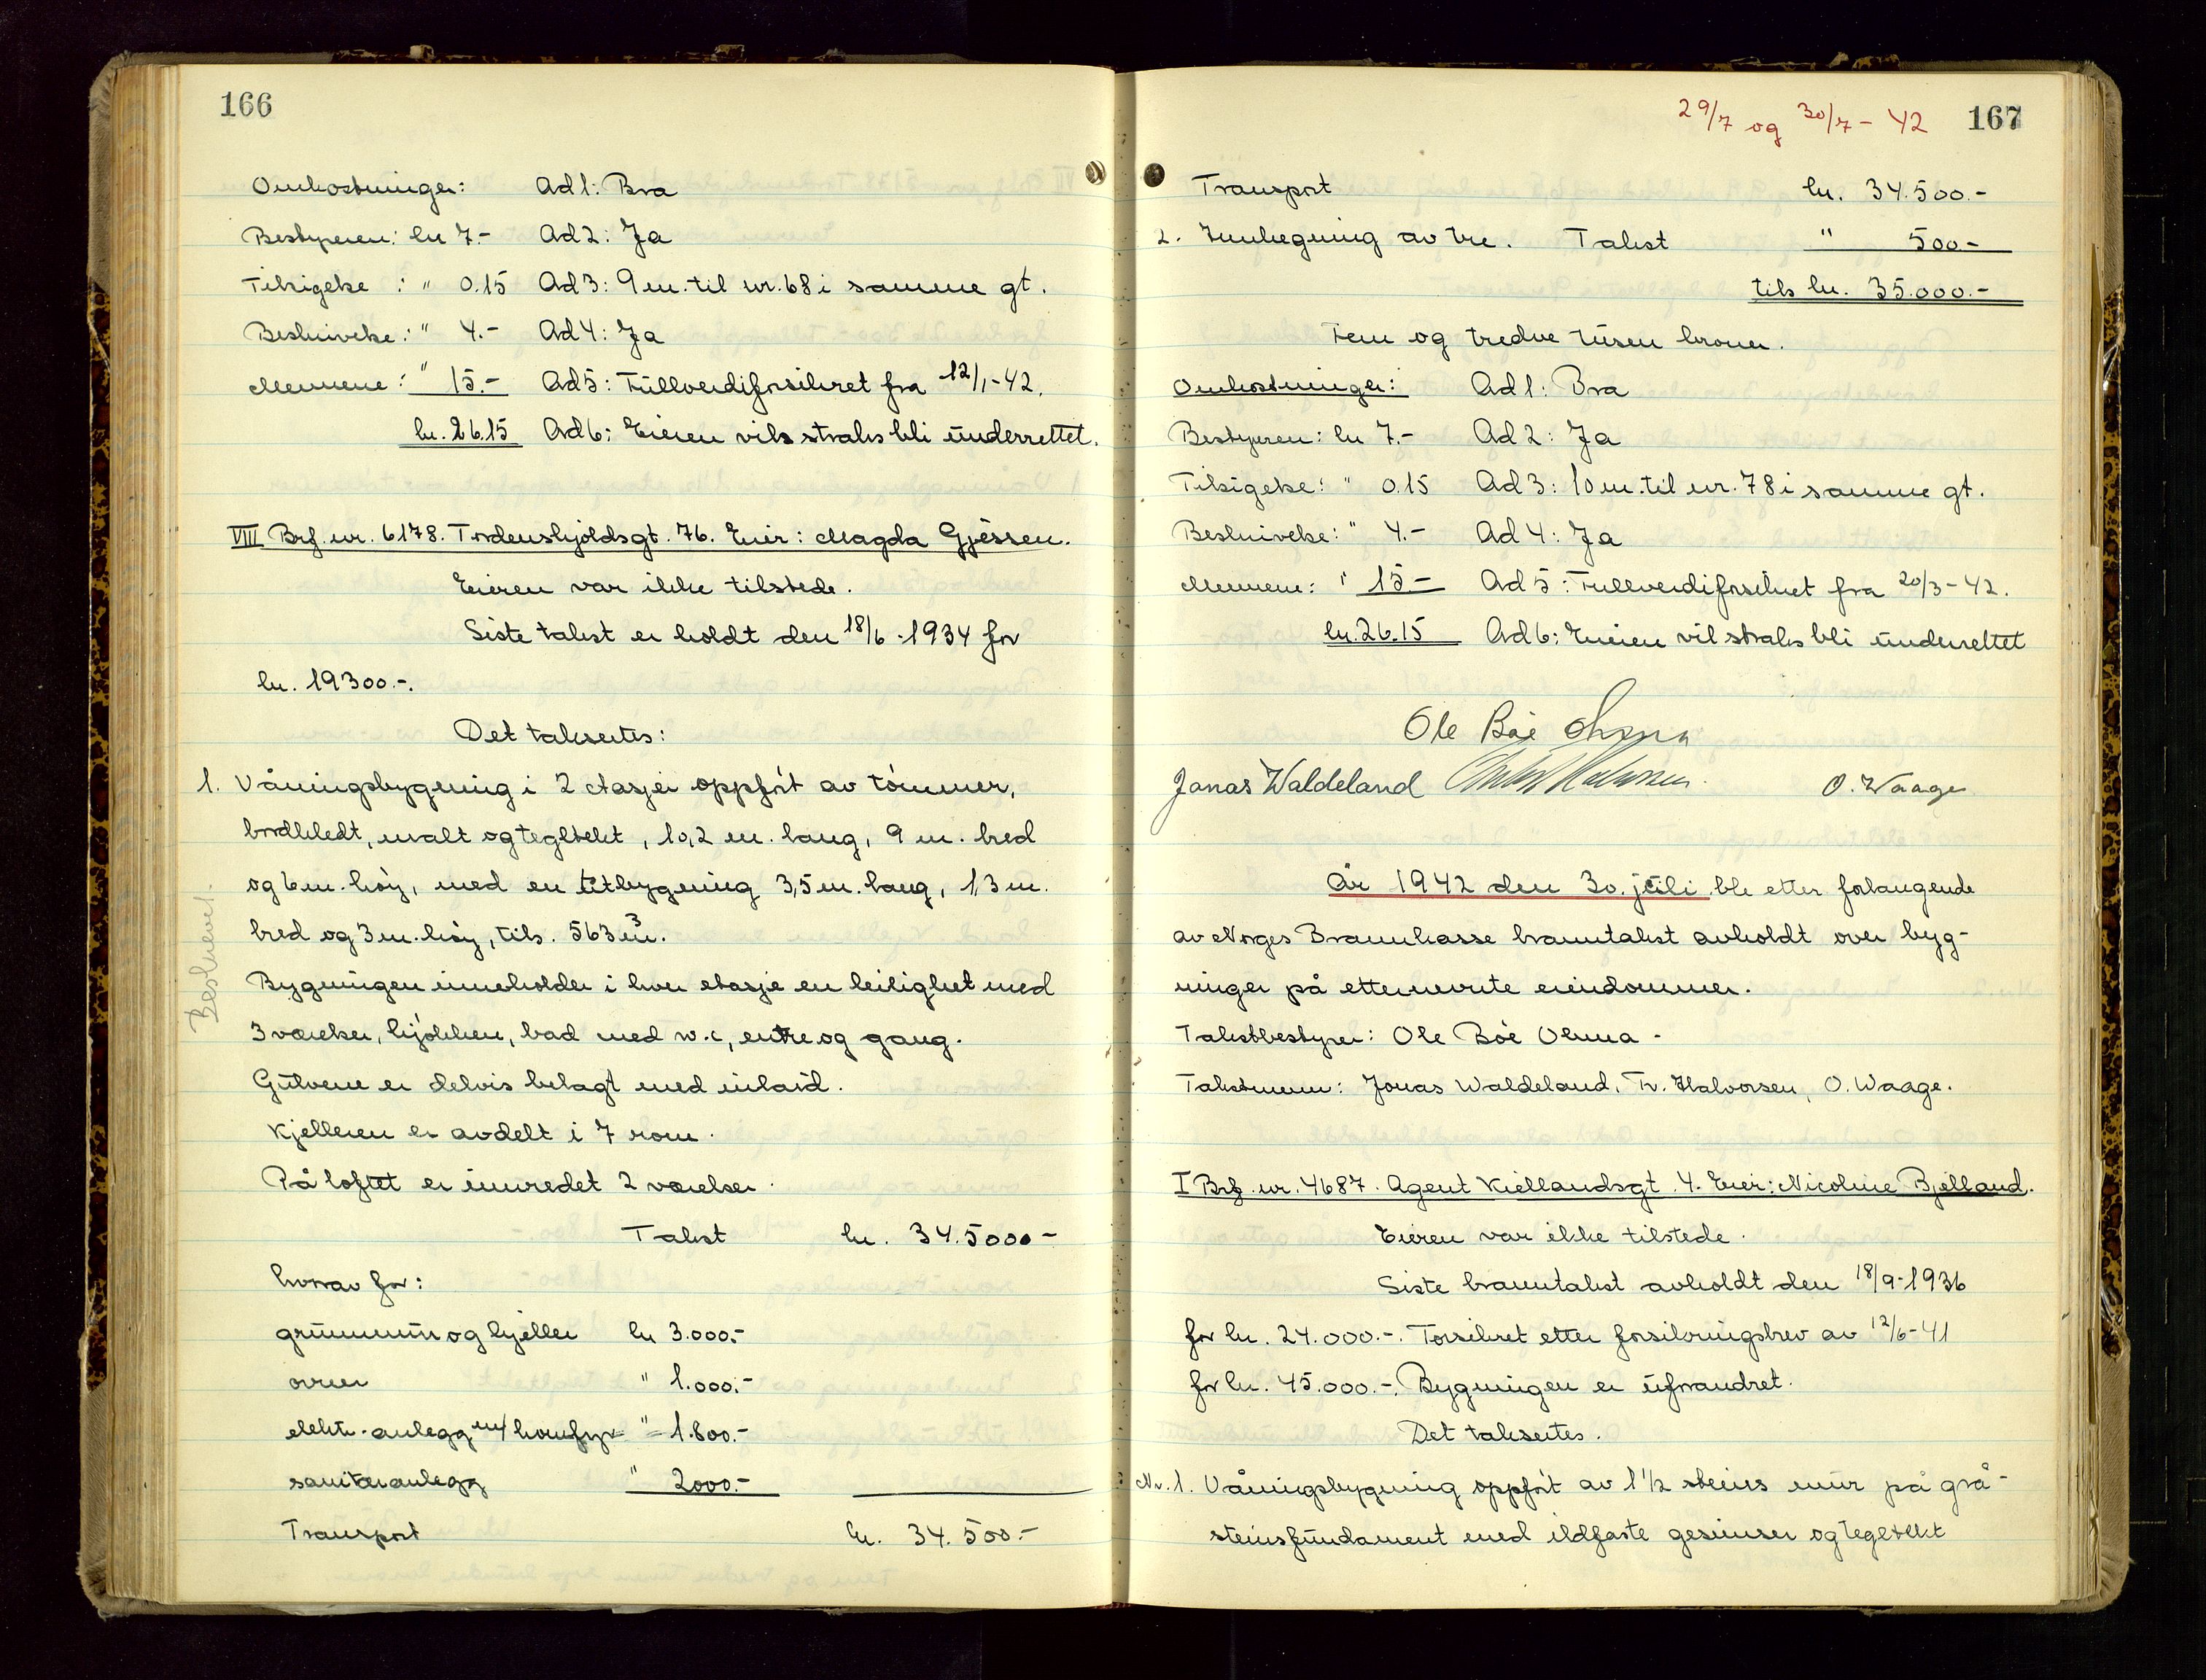 166
Omkostninger: Ad1: Bra
Bestyreren: kr 7.- Ad2: Ja
Tilsigelse : " 0.15 Ad3: 9 m. til nr. 68 i samme gt.
Beskrivelse : " 4.- Ad4: Ja
Mennene : " 15.- Ad5: Fullverdiforsikret fra 12/1-42.
kr. 26.15 Ad6: Eieren vils straks bli underrettet.
VIII Brf. nr. 6178. Tordenskjoldsgt. 76. Eier: Magda Gjessen.
Eieren var ikke tilstede.
Siste takst er holdt den 18/6-1934 for
kr. 19300.-.
Det takseres:
1. Våningsbygning i 2 etasjer oppført av tømmer,
bordkledt, malt og tegltekt, 10,2 m. lang, 9 m. bred
og 6 m. høy, med en utbygning 3,5 m. lang, 1,3 m.
bred og 3 m. høy, tils. 563 m³.
Bygningen inneholder i hver etasje en leilighet med
3 værelser, kjøkken, bad med w.c, entre og gang.
Gulvene er delvis belagt med inlaid.
Kjelleren er avdelt i 7 rom.
På loftet er innredet 2 værelser.
Beskrevet.
Takst kr. 34.5000-
hvorav for:
grunnmur og kjeller kr 3.000.-
ovner " 1.000.-
elektr. anlegg m/ komfyr " 1.800.-
saniteranlegg " 2000.-
Transport kr. 34.500.-
29/7 og 30/7 - 42 167
Transport kr. 34.500.-
2. Innhegning av tre. Takst " 500-
tils kr. 35.000.-
Fem og tredve tusen kroner.
Omkostninger: Ad1: Bra
Bestyreren: kr 7.- Ad2: Ja
Tilsigelse: " 0.15 Ad3: 10 m. til nr. 78 i samme gt.
Beskrivelse: " 4.- Ad4: Ja
Mennene: " 15.- Ad5: Fullverdiforsikret fra 20/3-42.
kr. 26.15 Ad6: Eieren vil straks bli underrettet
Ole Bøe
Jonas Waldeland O. Waage
År 1942 den 30. juli ble etter forlangende
av Norges Brannkasse branntakst avholdt over byg-
ninger på etternevnte eiendommer.
Takstbestyrer: Ole Bøe Olsma -
Takstmenn: Jonas Waldeland, Tr. Halvorsen, O. Waage.
I Brf. nr. 4687. Agent Kiellandsgt. 4. Eier: Nicoline Bjelland.
Eieren var ikke tilstede.
Siste branntakst avholdt den 18/9-1936
for kr. 24.000.-. Forsikret etter forsikringsbrev av 12/6-41
for kr. 45.000.-. Bygningen er uforandret.
Det takseres.
Nr. 1. Våningsbygning oppført av 1 1/2 steins mur på grå-
steinsfundament med ildfaste gesimser og tegltekt